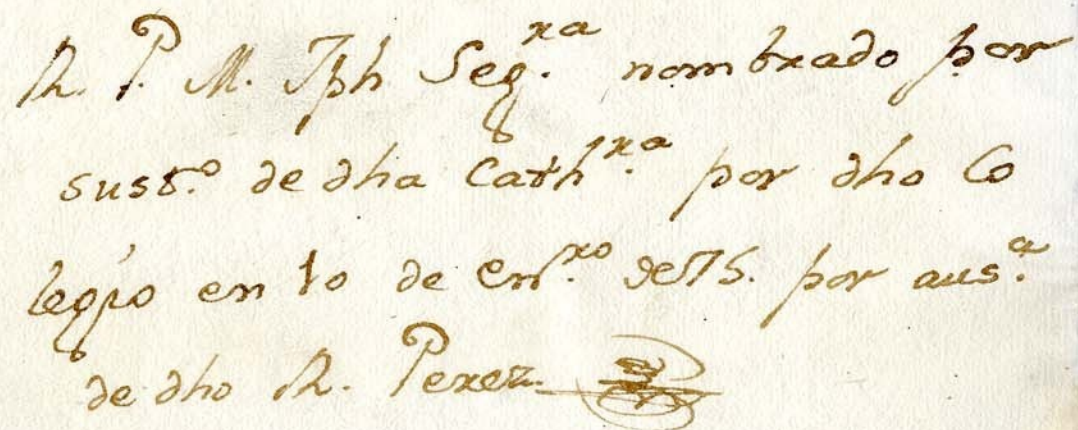 R. P. M. Jph Seg.ra nombrado por
sust.o de dha Cath.ra por dho Co
legio en 10 de En.ro de 75. por aus.a
de dho R. Perez.